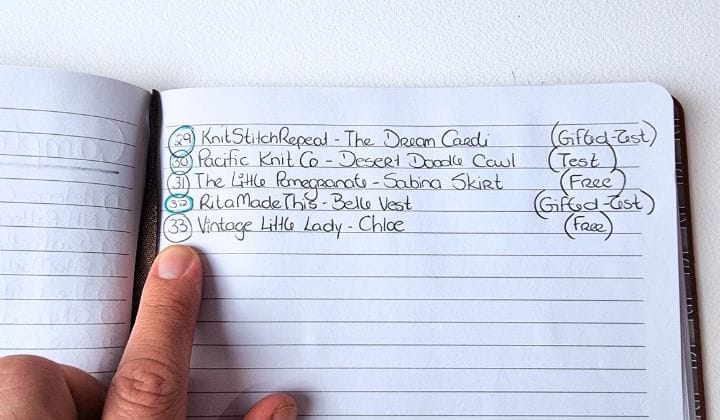 29 KnitStitchRepeat - The Dream Cardi (Gifted-Test)
30 Pacific Knit Co - Desert Doodle Cowl (Test)
31 The Little Pomegranate - Sabina Skirt (Free)
32 RitaMadeThis - Belle Vest (Gifted-Test)
33 Vintage Little Lady - Chloe (Free)